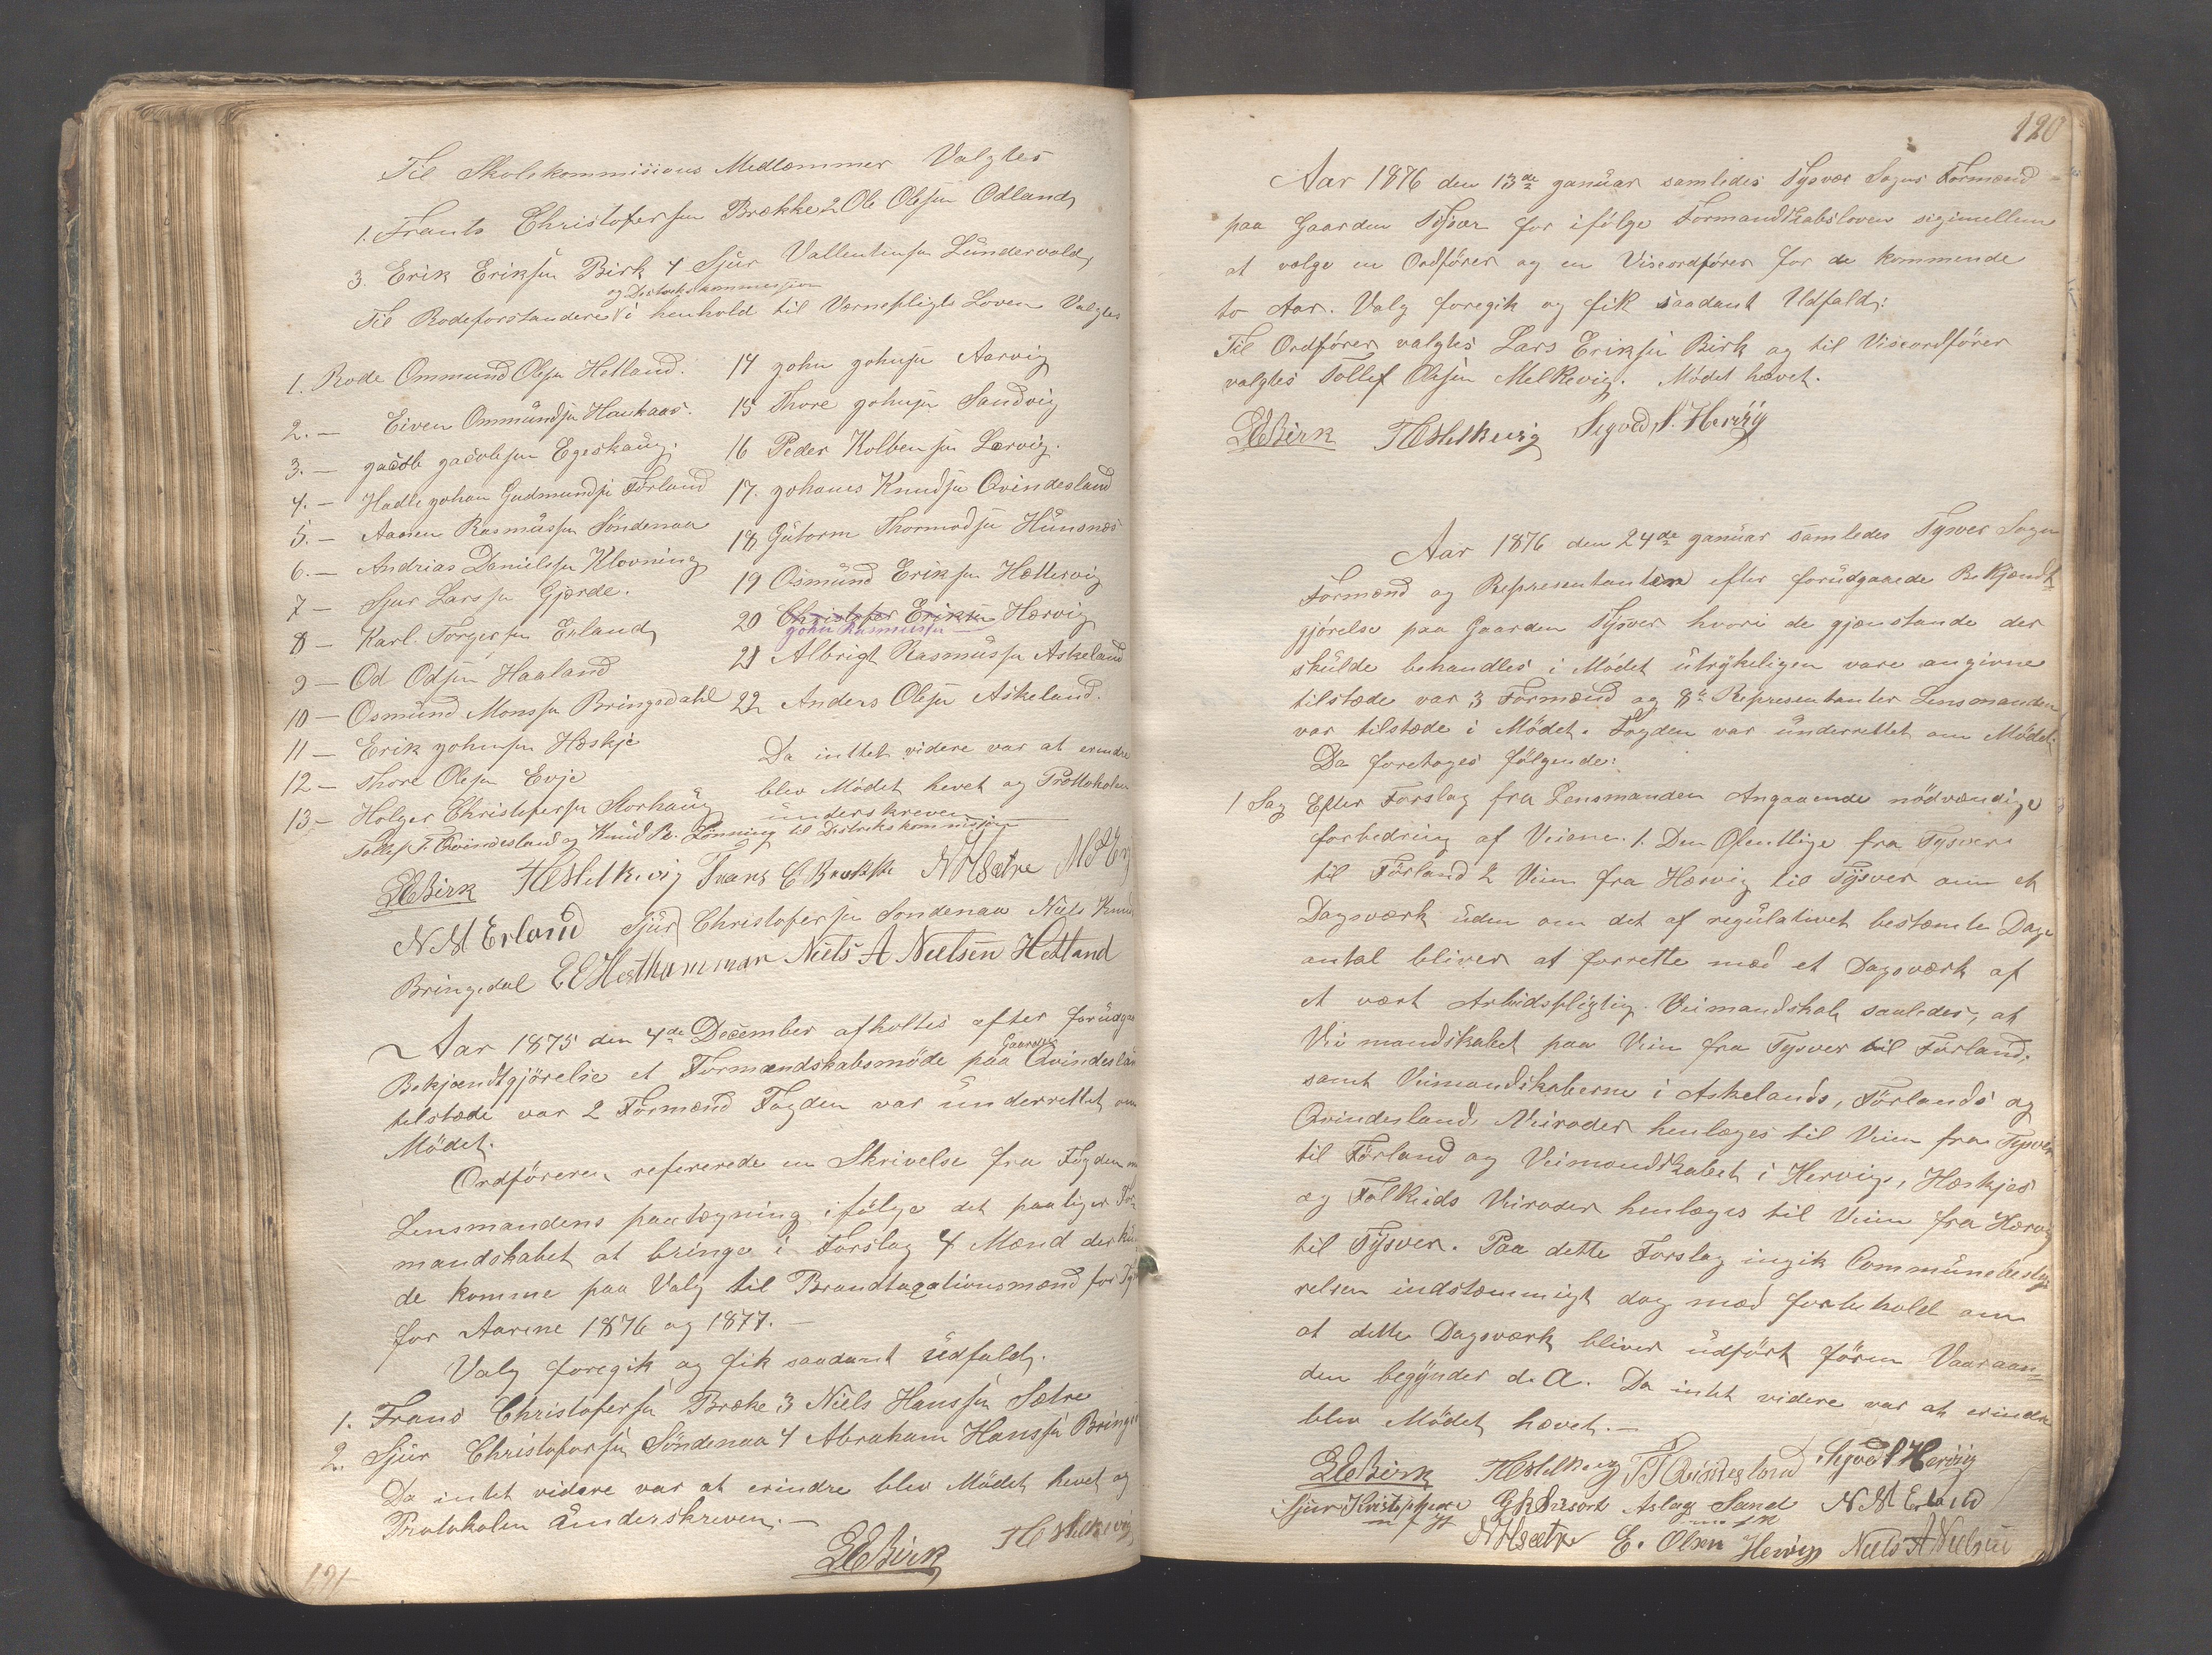 Til Skolekommisions Medlemmer Valgtes
1. Frants Christofersen Brække 2 Ole Olesen Odland
3. Erik Eriksen Birk 4 Sjur Vallentinsen Lundervold
og Distriktskommissjon
Til Rodeforstandere i henhold til Vernepligts Loven Valgtes
1. Rode Ommund Olsen Hetland.
2. — Eiven Ommundsen Haukaas.
3. — jacob jacobsen Egeskaug.
4. — Hadle johan Gudmundsen Førland
5. — Aamen Rasmussen Søndenaa
6. — Andrias Danielsen Klovning
7 — Sjur Larssen Gjerde.
8 — Karl. Torgersen Erland
9 — Od Odsen Haaland
10 — Osmund Monsen Bringedahl
11 — Erik johnsen Heskje
12 — Thore Olesen Evje
13 — Holger Christofersen Storhaug
14 john johnsen Aarvig
15 Thore johnsen Sandvig
16 Peder Kolbensen Lervig.
17. johanes Knudsen Qvindesland
18 Gutorm Thormodsen Hunsnes
19 Osmund Eriksen Hettervig
20 Christofer Eriksen Hervig
john Rasmussen
21 Albrigt Rasmussen Askeland
22 Anders Olesen Askeland.
Da inttet videre var at erindre
blev Mødet hevet og Prottokolen
underskreven
Tollef T. Qvindesland og Knud R. Lønning til Distrikskommissjon
LEBirk TOMelkevig Frans C Brække NHSætre
N M Erland Sjur Christofersen Søndenaa Niels Knud
Bringedal E E Hesthammar Niels A Nielsen Hetland
Aar 1875 den 4de December afholtes efter forudgaa
Bekjendtgjørelse et Formandskabsmøde paa Gaarden Qvindeslan
tilstæde var 2 Formænd Fogden var underrettet om
Mødet.
Ordføreren refererede en Skrivelse fra Fogden m
Lensmandens paategning ifølge det paaliger For-
mandskabet at bringe i Forslag 4 Mænd der kun
de komme paa Valg til Brandtaxationsmænd for Tys
for Aarene 1876 og 1877. —
Valg foregik og fik saadant Udfald.
1. Frans Christofersen Brekke 3 Niels Hanssen Sætre
2. Sjur Christofersen Søndenaa 4 Abraham Hanssen Bringe
Da intet videre var at erindre blev Mødet hevet og
Protokolen underskreven. —
LEBirk TOMelkevig
121
120
Aar 1876 den 13de januar samledes Tysvær Sogns Formænd
paa Gaarden Tysvær for ifølge Formandskabsloven sigimellem
at vælge en Ordfører og en Viseordfører for de kommende
to Aar. Valg foregik og fik saadant Udfald:
Til Ordfører valgtes Lars Eriksen Birk og til Viseordfører
valgtes Tollef Olesen Melkevig. Mødet hævet.
LEBirk TOMelkevig Sigvald S. Hervig
Aar 1876 den 24de januar samledes Tysver Sogn
Formænd og Representanter efter forudgaaede Bekjendt
gjørelse paa Gaarden Tysver hvori de gjenstande der
skulde behandles i Mødet utrykeligen vare angivne
tilstæde var 3 Formænd og 8te Representanter Lensmanden
var tilstæde i Mødet. Fogden var underrettet om Mødet
Da foretoges følgende:
1 Sag Efter Forslag fra Lensmanden Angaaende nødvendige
forbedring af Veiene. 1. Den Ofentlige fra Tysver
til Førland 2 Veien fra Hervig til Tysver om et
Dagsværk uden om det af regulativet bestemte Dags
antal bliver at forrette med et Dagsværk af
et vært Arbeidspligtig Veimandskab saaledes, at
Vei mandskabet paa Veien fra Tysver til Førland,
samt Veimandskaberne i Askelands, Førlands og
Qvindesland Veiroder henlægges til Veien fra Tysver
til Førland og Veimandskabet i Hervigs, Heskjes
og Falkeids Veiroder henlæges til Veien fra Hervig
til Tysver. Paa dette Forslag ingik Communebesty
relsen indstæmmigt dog med forbehold om
at dette Dagsværk bliver udført føren Vaaraan=
den begynder d. A. Da intet videre var at erindre
blev Mødet hævet. —
LEBirk TOMelkevig T T Qvindesland Sigvald S Hervig
Sjur Kristophersen Aslag Sand N M Erland
m f P m f P
NHSætre E. Olsen Hervig Niels A Nielsen